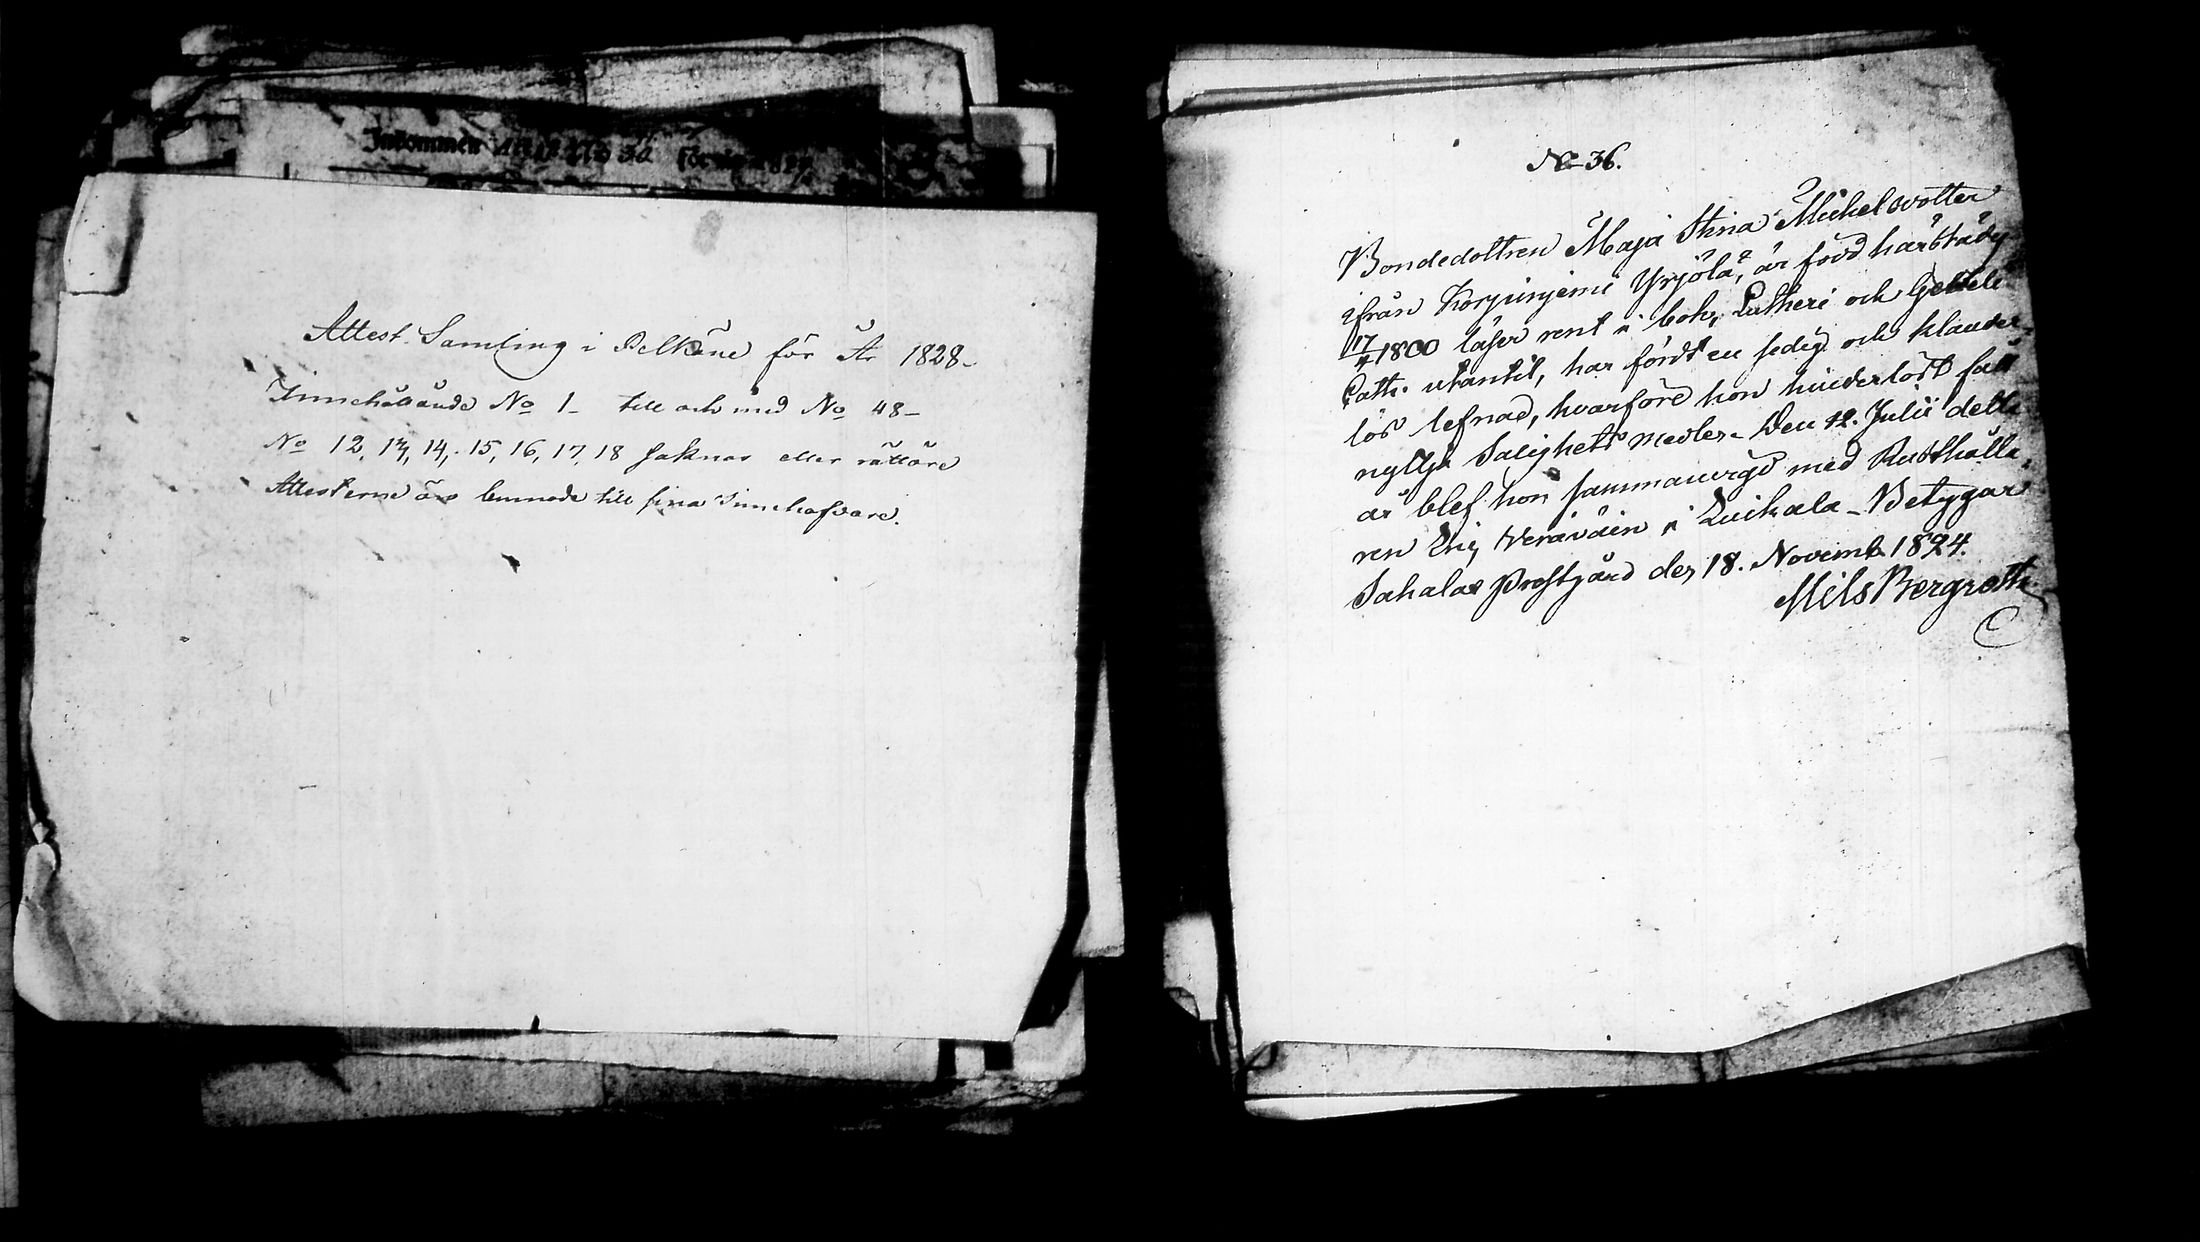 Inkommen
Attest. Samling i Pelkäne för År 1828-
Innehållande No 1- till och med No 48-
No 12, 13, 14, 15, 16, 17, 18 saknas eller rättare
Attesterne äro lemnade till sina Innehafvare.
No 36.
Bondedottren Maja Stina Michelsdotter
ifrån Korpiniemi Yrjölä, är född härstädes
17/4 1800 läser rent i bok, Lutheri och Gezelii
Cath: utantil, har fördt en sedig och klander-
lös lefnad, hvarföre hon hinderlöst fått
nyttja Salighets medlen. Den 12. Julii detta
år blef hon sammanvigd med Rusthålla-
ren Eric Veräväin i Luikala - Betygar
Sahalax Prostgård den 18. Novemb. 1824.
Nils Bergroth